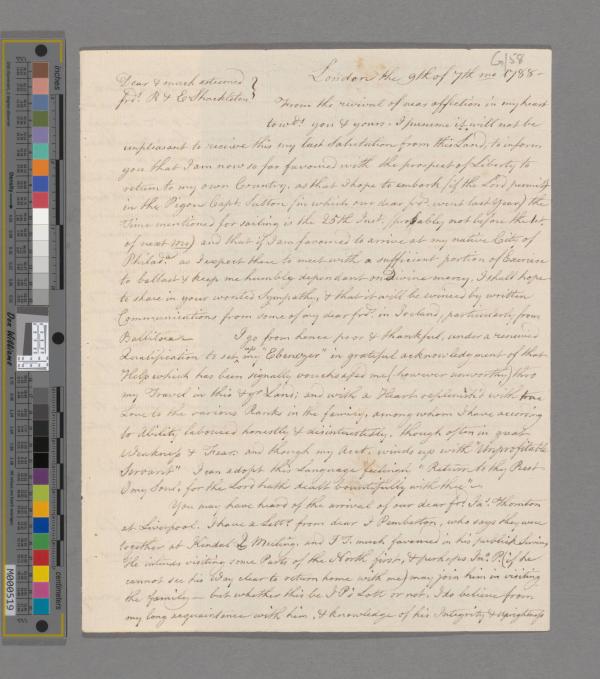 G/58
London the 9th of 7th mo 1788-
Dear & much esteemed
frds. R & E Shackleton
From the revival of near affection in my heart
towds. you & yours - I presume it will not be
unpleasant to receive this my last Salutation from this Land, to inform
you that I am now so far favoured with the prospect of Liberty to
return to my own Country, as that I hope to embark (if the Lord permit)
in the Pigou Capt. Sutton (in which our dear frds. went last year) the
Time mentioned for sailing is the 25th Inst. (probably not before the 1st.
of next mo) and that if I am favoured to arrive at my native City of
Philada. as I expect there to meet with a sufficient portion of Exercise
to ballast & keep me humbly dependant on Divine mercy, I shall hope
to share in your wonted Sympathy, & that it will be evinced by written
Communications from some of my dear frds. in Ireland, particularly from
Ballitore
I go from hence poor & thankful, under a renewed
Qualification to set up my "Ebenezer" in grateful acknowledgment of that
Help which has been signally vouchsafed me (however unworthy) thro
my Travel in this & yr Land; and with a Heart replenish'd with true
Love to the various Ranks in the family, among whom I have according
to Ability laboured honestly & disinterestedly, though often in great
Weakness & Fear, and though my Acct. winds up with "Unprofitable
Servant" I can adopt this Language "Return to thy Rest
O my Soul, for the Lord hath dealt bountifully with thee"
You may have heard of the arrival of our dear frd. Jas. Thornton
at Liverpool. I have a Lettr. from dear J Pemberton, who says they were
together at Kendal Meeting, and J T. much favoured in his publick Service,
He intends visiting some Parts of the North first, & perhaps Jno. P. (if he
cannot see his Way clear to return home with me) may join him in visiting
the family - but whether this be J P's Lott or not, I do believe from
my long acquaintance with him, & knowledge of his Integrity & Uprightness
inches
centimeters
Don Williams
M000519